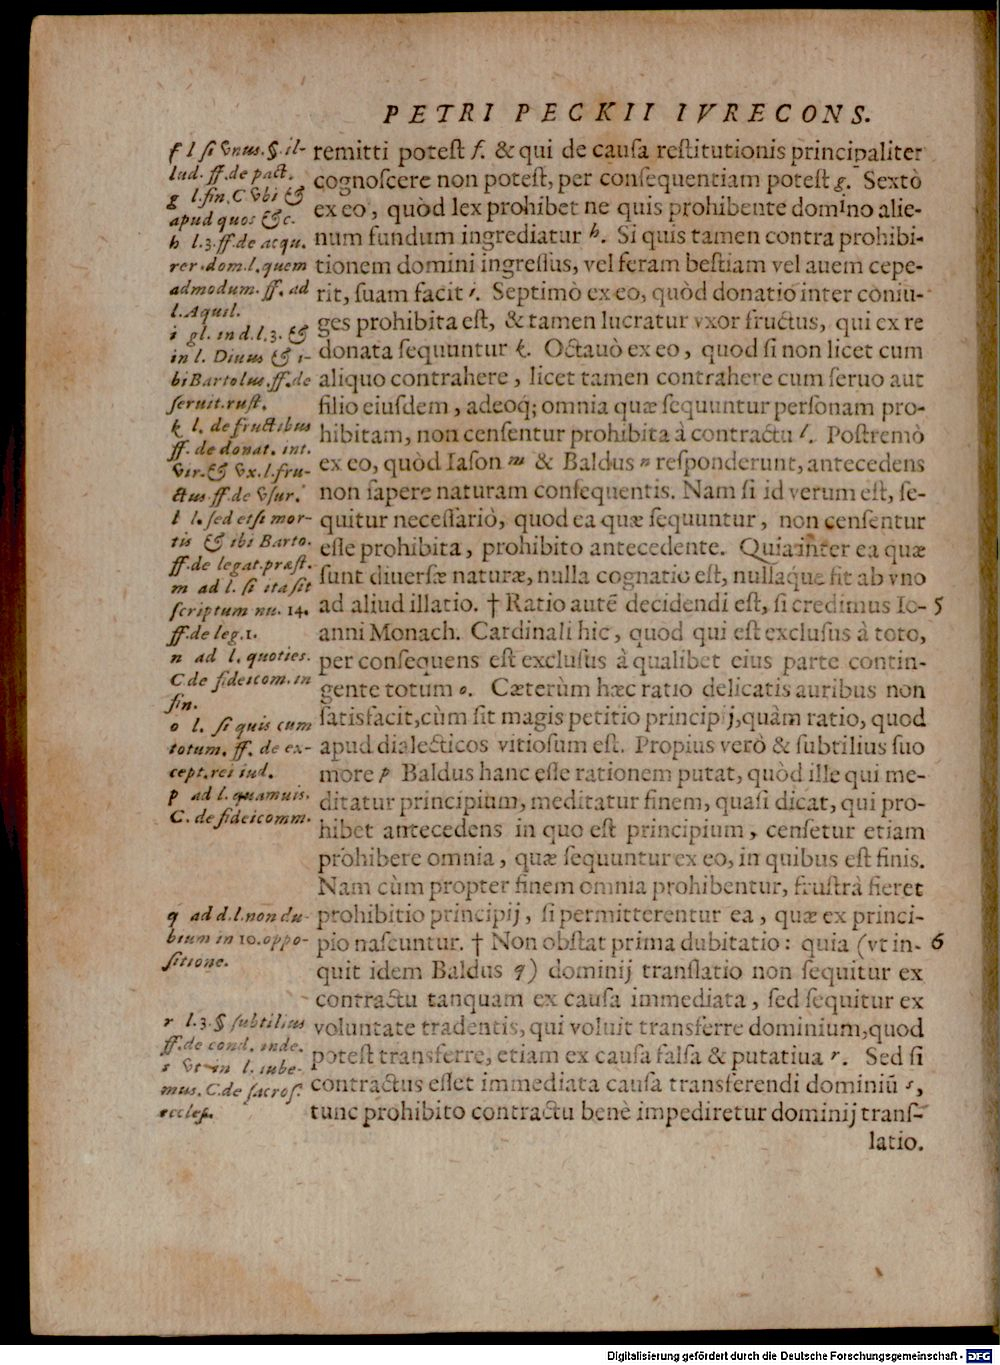 PETRI PECKII IVRECONS.
remitti potest f. & qui de causa restitutionis principaliter
cognoscere non potest, per consequentiam potest g. Sextò
ex eo, quòd lex prohibet ne quis prohibente domino alie-
num fundum ingrediatur h. Si quis tamen contra prohibi-
tionem domini ingressus, vel feram bestiam vel auem cepe-
rit, suam facit i. Septimò ex eo, quòd donatio inter coniu-
ges prohibita est, & tamen lucratur vxor fructus, qui ex re
donata sequuntur k. Octauò ex eo, quod si non licet cum
aliquo contrahere, licet tamen contrahere cum seruo aut
filio eiusdem, adeoq; omnia quæ sequuntur personam pro-
hibitam, non censentur prohibita à contractu l. Postremò
ex eo, quòd Iason m & Baldus n responderunt, antecedens
non sapere naturam consequentis. Nam si id verum est, se-
quitur necessariò, quod ea quæ sequuntur, non censentur
esse prohibita, prohibito antecedente. Quia inter ea quæ
sunt diuersæ naturæ, nulla cognatio est, nullaque fit ab vno
ad aliud illatio. † Ratio autē decidendi est, si credimus Io- 5
anni Monach. Cardinali hic, quod qui est exclusus à toto,
per consequens est exclusus à qualibet eius parte contin-
gente totum o. Cæterùm hæc ratio delicatis auribus non
satisfacit, cùm sit magis petitio principij, quàm ratio, quod
apud dialecticos vitiosum est. Propius verò & subtilius suo
more p Baldus hanc esse rationem putat, quòd ille qui me-
ditatur principium, meditatur finem, quasi dicat, qui pro-
hibet antecedens in quo est principium, censetur etiam
prohibere omnia, quæ sequuntur ex eo, in quibus est finis.
Nam cùm propter finem omnia prohibentur, frustrà fieret
prohibitio principij, si permitterentur ea, quæ ex princi-
pio nascuntur. † Non obstat prima dubitatio: quia (vt in- 6
quit idem Baldus q) dominij translatio non sequitur ex
contractu tanquam ex causa immediata, sed sequitur ex
voluntate tradentis, qui voluit transferre dominium, quod
potest transferre, etiam ex causa falsa & putatiua r. Sed si
contractus esset immediata causa transferendi dominiū s,
tunc prohibito contractu benè impediretur dominij trans-
latio.
f l si vnus. §. il-
lud. ff. de pact.
g l. fin. C vbi &
apud quos &c.
h l. 3. ff. de acqu.
rer. dom. l. quem
admodum. ff. ad
l. Aquil.
i gl. in d. l. 3. &
in l. Diuus & i-
bi Bartolus. ff. de
seruit. rust.
k l. de fructibus
ff. de donat. int.
vir. & vx. l. fru-
ctus. ff. de vsur.
l l. sed etsi mor-
tis & ibi Barto.
ff. de legat. præst.
m ad l. si ita sit
scriptum nu. 14.
ff. de leg. 1.
n ad l. quoties.
C de fideicom. in
fin.
o l. si quis cum
totum. ff. de ex-
cept. rei iud.
p ad l. quamuis.
C. de fideicomm.
q ad d. l. non du-
bium in 10. oppo-
sitione.
r l. 3. § subtilius
ff. de cond. inde.
s vt in l. iube-
mus. C. de sacros.
eccles.
Digitalisierung gefördert durch die Deutsche Forschungsgemeinschaft - DFG